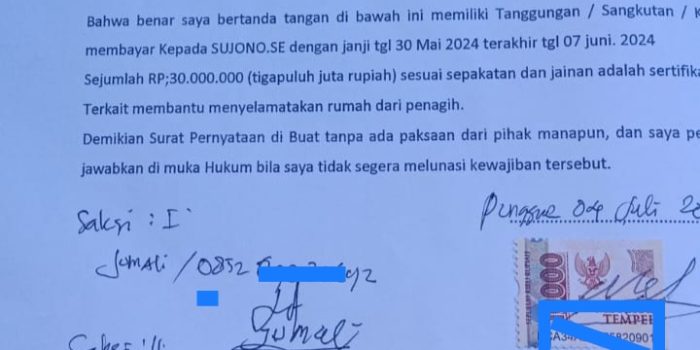 Bahwa benar saya bertanda tangan di bawah ini memiliki Tanggungan / Sangkutan /
membayar Kepada SUJONO.SE dengan janji tgl 30 Mai 2024 terakhir tgl 07 juni. 2024
Sejumlah RP;30.000.000 (tigapuluh juta rupiah) sesuai sepakatan dan jainan adalah sertifika
Terkait membantu menyelamatakan rumah dari penagih.
Demikian Surat Pernyataan di Buat tanpa ada paksaan dari pihak manapun, dan saya pe
jawabkan di muka Hukum bila saya tidak segera melunasi kewajiban tersebut.
Saksi : I
04 Juli
Jumali / 0852
000
TEMPEL
Jumali